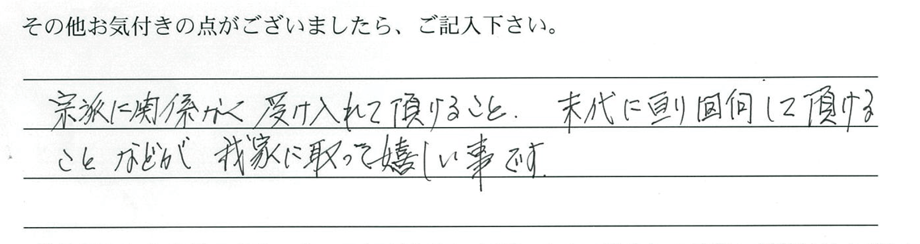 その他お気付きの点がございましたら、ご記入下さい。
宗派に関係なく受け入れて頂けること. 末代に亘り回向して頂ける
ことなどが 我家に取って嬉しい事です.